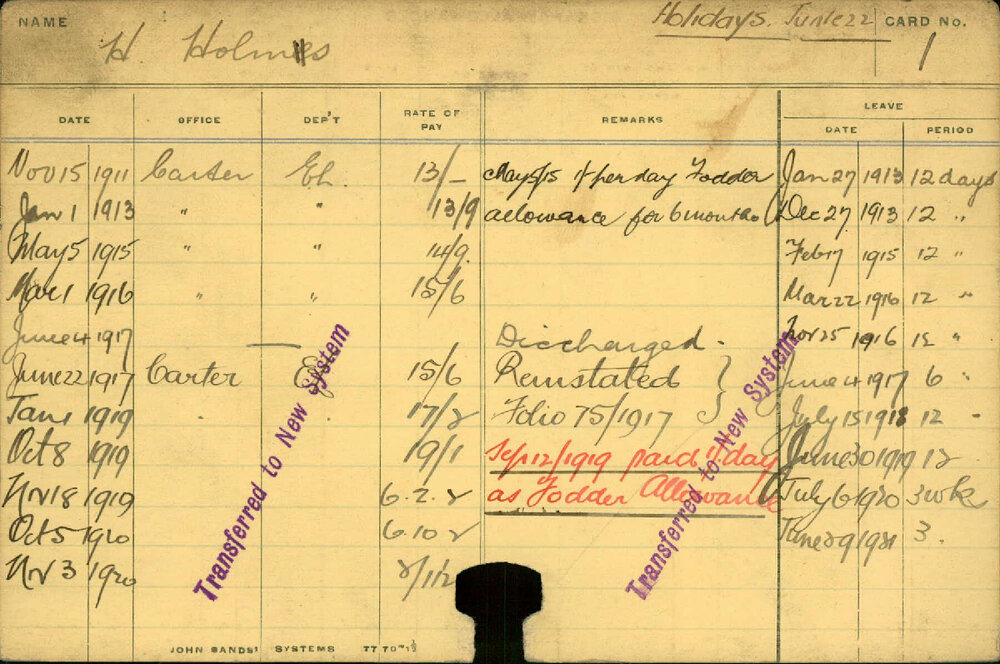 NAME H. Holmes Holidays. June 22 CARD No. 1
DATE OFFICE DEP'T RATE OF PAY REMARKS LEAVE
DATE PERIOD
Nov 15 1911 Carter Eh. 13/- May 5/15 1/- per day Fodder Jan 27 1913 12 days
Jan 1 1913 " " 13/9 allowance for 6 months Dec 27 1913 12 "
May 5 1915 " " 14/9. Feb 17 1915 12 "
Mar 1 1916 " " 15/6 Mar 22 1916 12 "
June 4 1917 — Discharged. Nov 25 1916 12 "
June 22 1917 Carter 15/6 Reinstated } June 4 1917 6 "
Jan 1 1919 " " 17/2 Folio 75/1917 } July 15 1918 12 "
Oct 8 1919 19/1 Sep 12/1919 paid 1/- day June 30 1919 12
Nov 18 1919 6.2.2 as Fodder Allowance July 6 1920 3 wks
Oct 5 1920 6.10.2 June 29 1921 3.
Nov 3 1920
Transferred to New System
Transferred to New System
JOHN SANDS' SYSTEMS